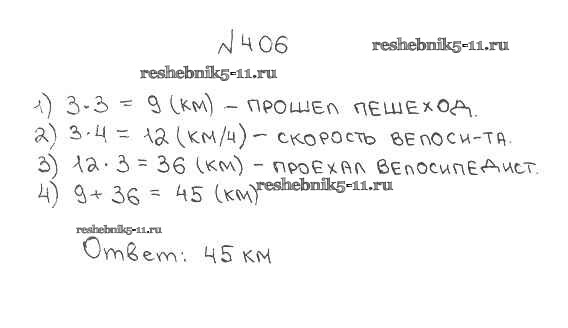 №406 reshebnik5-11.ru
reshebnik5-11.ru
1) 3·3 = 9 (км) – прошел пешеход.
2) 3·4 = 12 (км/ч) – скорость велоси-та.
3) 12·3 = 36 (км) – проехал велосипедист.
4) 9+36 = 45 (км) reshebnik5-11.ru
reshebnik5-11.ru
Ответ: 45 км